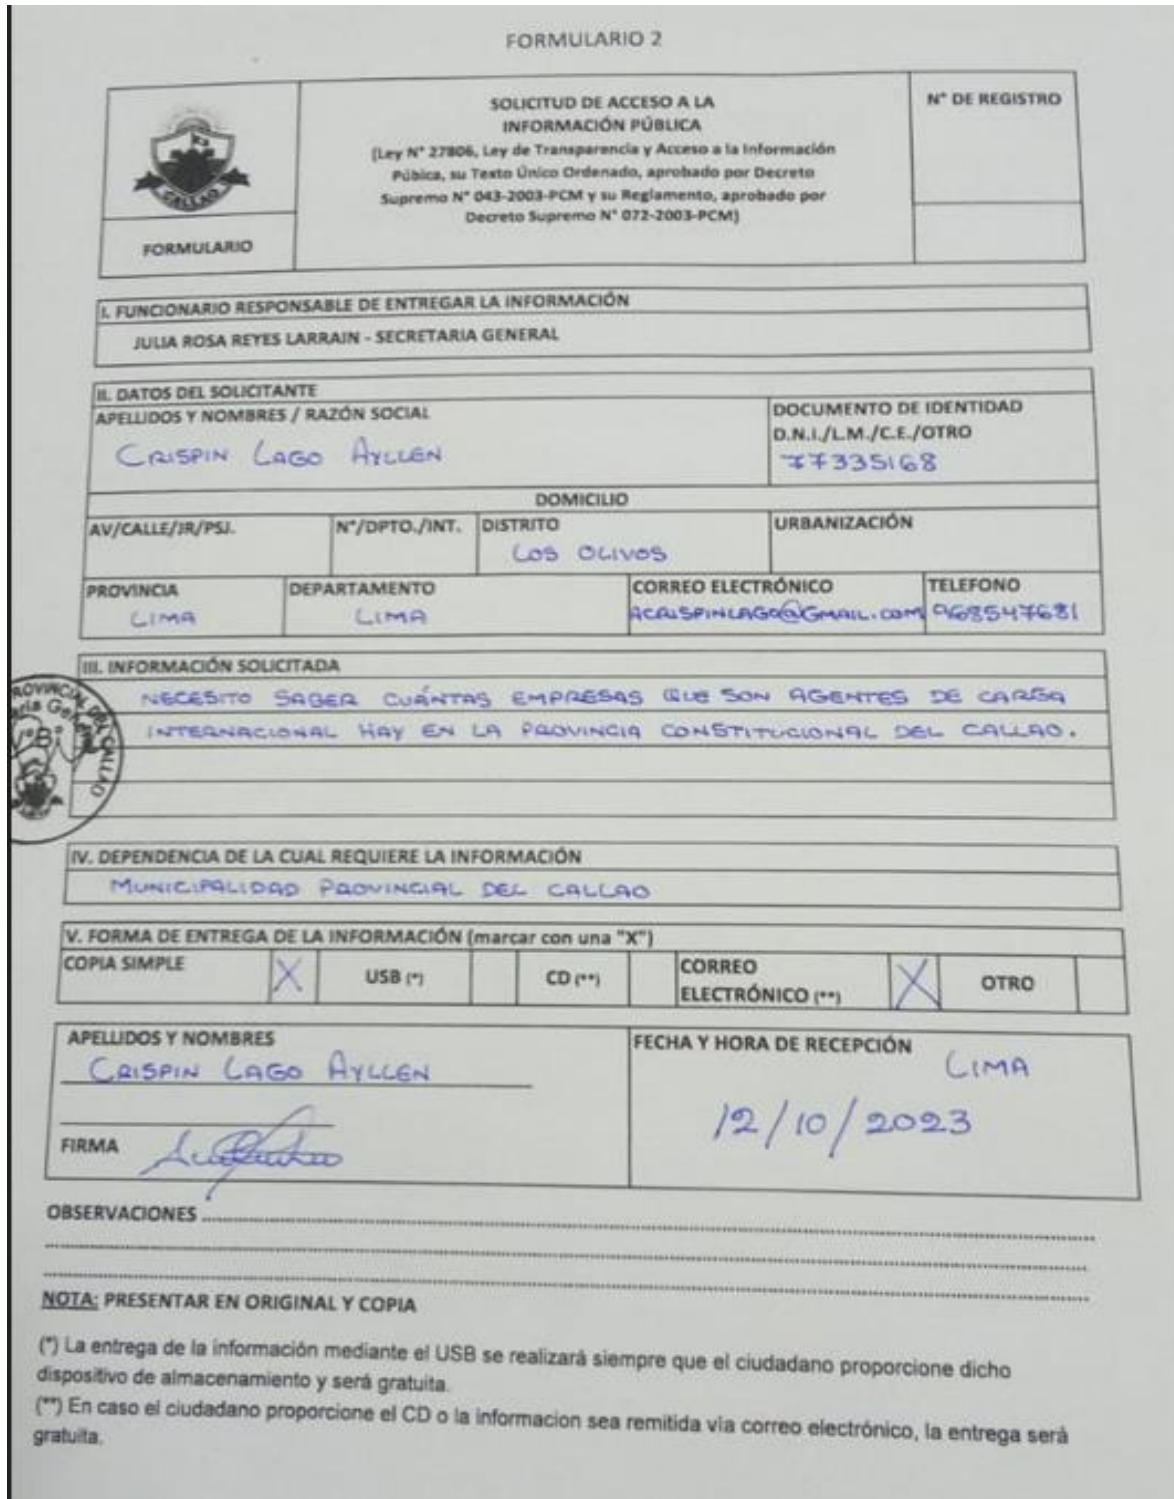 FORMULARIO 2
SOLICITUD DE ACCESO A LA
INFORMACIÓN PÚBLICA
(Ley N° 27806, Ley de Transparencia y Acceso a la Información
Púbica, su Texto Único Ordenado, aprobado por Decreto
Supremo N° 043-2003-PCM y su Reglamento, aprobado por
Decreto Supremo N° 072-2003-PCM)
N° DE REGISTRO
CALLAO
FORMULARIO
I. FUNCIONARIO RESPONSABLE DE ENTREGAR LA INFORMACIÓN
JULIA ROSA REYES LARRAIN - SECRETARIA GENERAL
II. DATOS DEL SOLICITANTE
APELLIDOS Y NOMBRES / RAZÓN SOCIAL
CRISPIN LAGO AYLLEN
DOCUMENTO DE IDENTIDAD
D.N.I./L.M./C.E./OTRO
77335168
DOMICILIO
AV/CALLE/JR/PSJ.
N°/DPTO./INT.
DISTRITO
LOS OLIVOS
URBANIZACIÓN
PROVINCIA
LIMA
DEPARTAMENTO
LIMA
CORREO ELECTRÓNICO
ACRISPINLAGO@GMAIL.COM
TELEFONO
968547681
III. INFORMACIÓN SOLICITADA
NECESITO SABER CUÁNTAS EMPRESAS QUE SON AGENTES DE CARGA
INTERNACIONAL HAY EN LA PROVINCIA CONSTITUCIONAL DEL CALLAO.
PROVINCIAL DEL CALLAO
V°B°
IV. DEPENDENCIA DE LA CUAL REQUIERE LA INFORMACIÓN
MUNICIPALIDAD PROVINCIAL DEL CALLAO
V. FORMA DE ENTREGA DE LA INFORMACIÓN (marcar con una "X")
COPIA SIMPLE X USB (*) CD (**) CORREO
ELECTRÓNICO (**) X OTRO
APELLIDOS Y NOMBRES
CRISPIN LAGO AYLLEN
FIRMA
FECHA Y HORA DE RECEPCIÓN
LIMA
12/10/2023
OBSERVACIONES
NOTA: PRESENTAR EN ORIGINAL Y COPIA
(*) La entrega de la información mediante el USB se realizará siempre que el ciudadano proporcione dicho
dispositivo de almacenamiento y será gratuita.
(**) En caso el ciudadano proporcione el CD o la informacion sea remitida vía correo electrónico, la entrega será
gratuita.